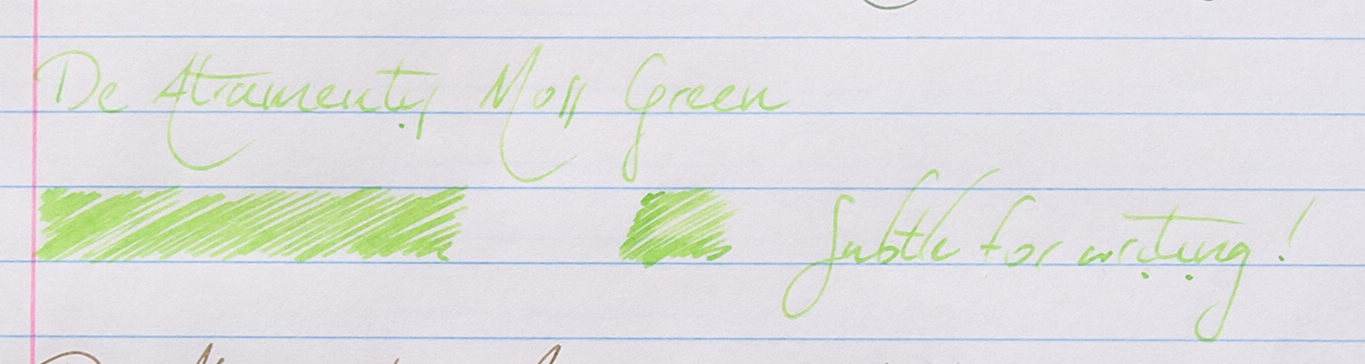 De Atramentis Moss Green
Subtle for writing!